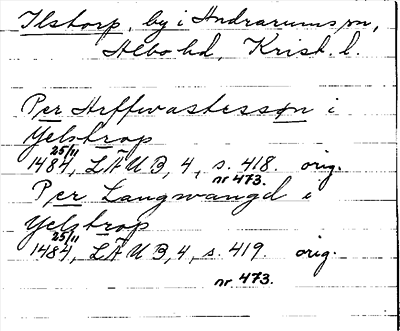 Ilstorp, by i Andrarums sn,
Albo hd, Krist. l.
Per Heffwastesson i
Yelstrop
25/11
1484, LÄUB, 4, s. 418. orig.
nr 473.
Per Langwangd i
Yelstrop
25/11
1484, LÄUB, 4, s. 419. orig.
nr 473.